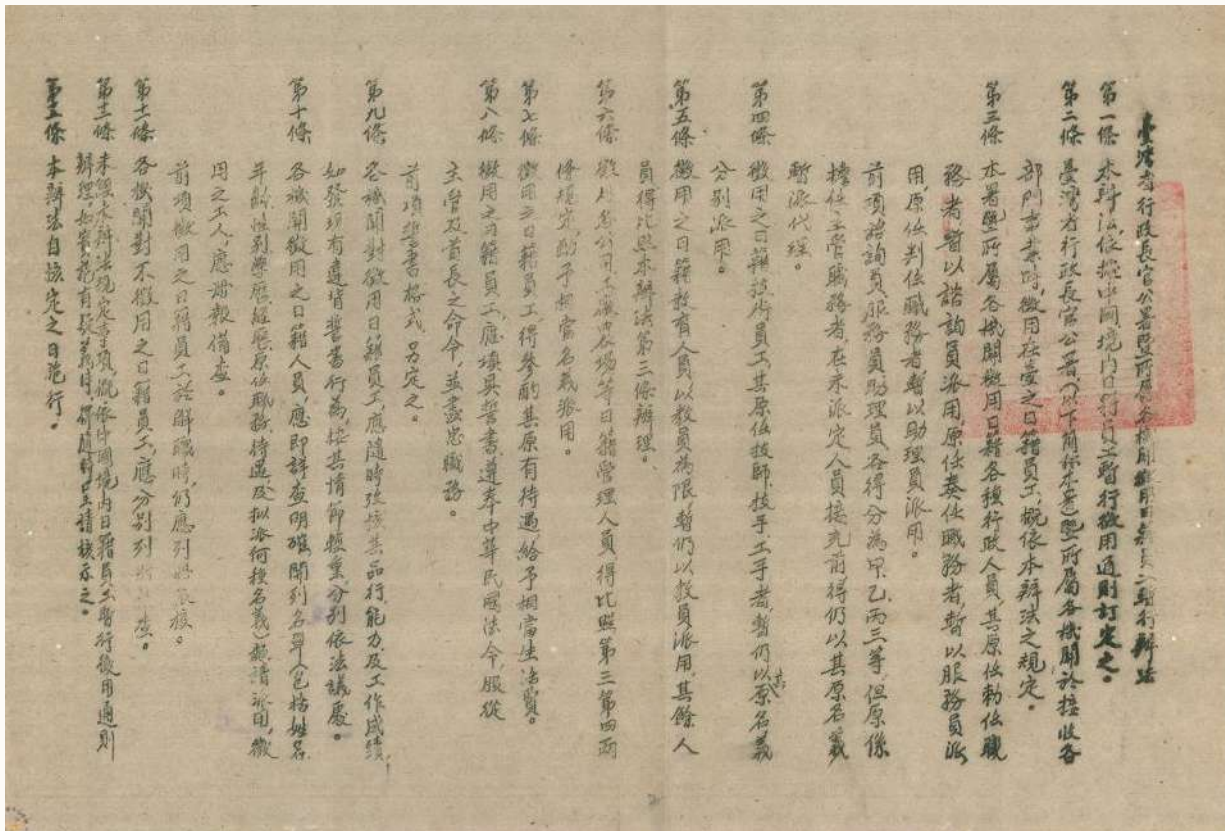 臺灣省行政長官公署暨所屬各機關徵用日籍員工暫行辦法
第一條 本辦法依據中國境內日籍員工暫行徵用通則訂定之。
第二條 臺灣省行政長官公署(以下簡稱本署)暨所屬各機關於接收各
部門事業時,徵用在臺之日籍員工,概依本辦法之規定。
第三條 本署暨所屬各機關徵用日籍各種行政人員,其原任勅任職
務者,暫以諮詢員派用,原任奏任職務者,暫以服務員派
用,原任判任職務者,暫以助理員派用。
前項諮詢員服務員助理員各得分為甲乙丙三等,但原係
擔任主管職務者,在未派定人員接充前得仍以其原名義
暫派代理。
第四條 徵用之日籍技術員工,其原任技師、技手、工手者,暫仍以原名義
分別派用。
第五條 徵用之日籍教育人員以教員為限,暫仍以教員派用,其餘人
員得比照本辦法第三條辦理。
第六條 徵用各公司工廠農場等日籍管理人員得比照第三第四兩
條規定,酌予相當名義派用。
第七條 徵用之日籍員工得參酌其原有待遇,給予相當生活費。
第八條 徵用之日籍員工應填具誓書,遵奉中華民國法令,服從
主管及首長之命令,並盡忠職務。
前項誓書格式,另定之。
第九條 各機關對徵用日籍員工,應隨時考核其品行能力及工作成績,
如發現有違背誓書行為,按其情節輕重,分別依法議處。
第十條 各機關徵用之日籍人員,應即詳查明確,開列名單(包括姓名
年齡性別學歷經歷原任職務待遇及擬派何種名義)報請 徵
用之工人,應 報備查。
前項徵用之日籍員工於解職時,仍應列冊 核。
第十一條 各機關對不徵用之日籍員工,應分別列
第十二條 未經本辦法規定事項,概依中國境內日籍員工暫行徵用通則
辦理,如實施有疑義時,得隨時呈請核示之。
第十三條 本辦法自核定之日施行。